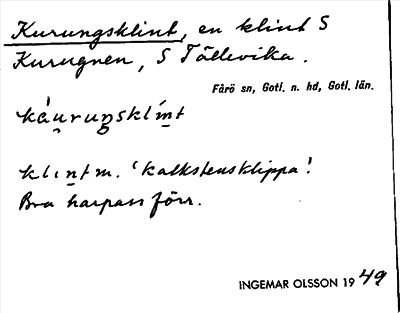 Kurungsklint, en klint S
Kurugnen, S Tällevika.
Fårö sn, Gotl. n. hd, Gotl. län.
káurungsklínt
klint m. 'kalkstensklippa'.
Bra harpass förr.
INGEMAR OLSSON 1949